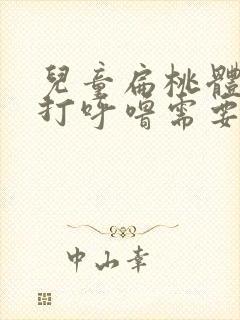 兒童扁桃體
打呼嚕需要
中山幸